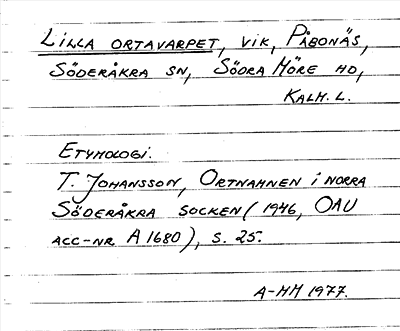 Lilla ortavarpet, vik, Påbonäs,
Söderåkra sn, Södra Möre hd,
Kalm. l.
Etymologi.
T. Johansson, Ortnamnen i norra
Söderåkra socken (1946, OAU
acc-nr A 1680), s. 25.
A-MH 1977.